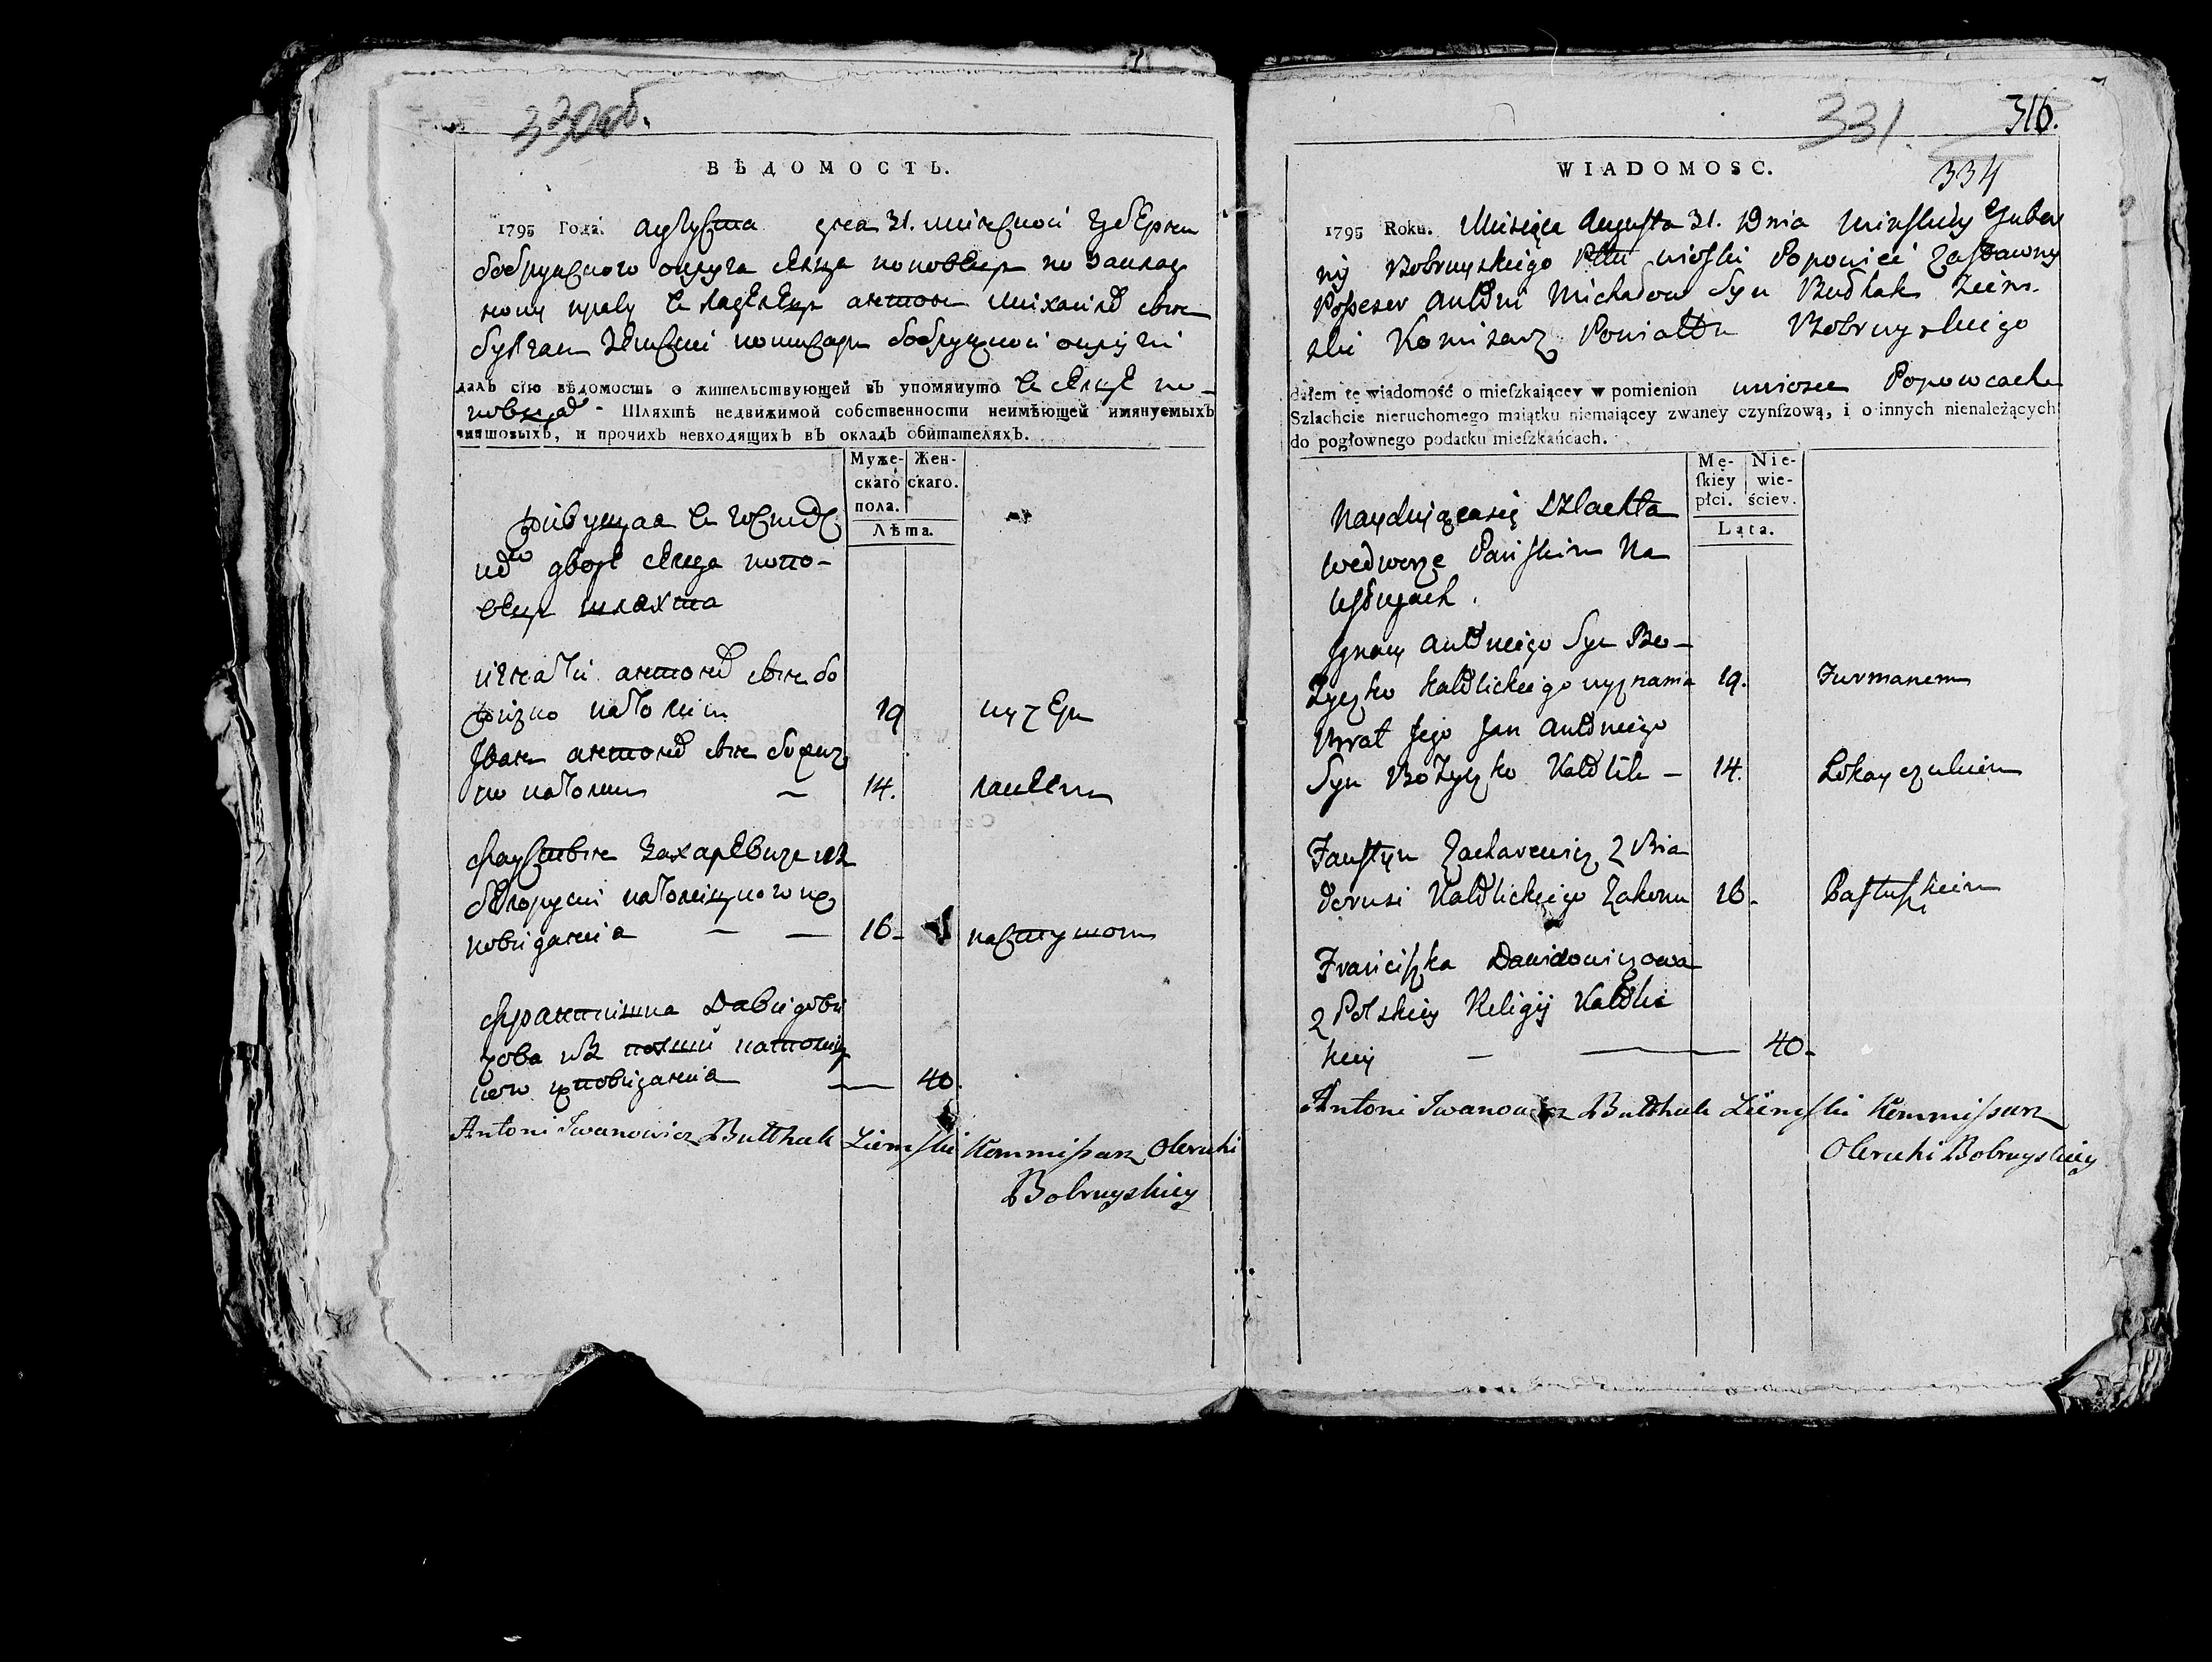 330об.
ВѢДОМОСТЬ.
1795 Года. августа дня 31. минской губернии
бобруйского округа селца поповец по заклад
ному праву владелец антон михайлов сын
булгак земский комисар бобруйской округи
далъ сїю вѣдомость о жительствующей въ упомянуто в селце по-
повцах - Шляхтѣ недвижимой собственности неимѣющей имянуемыхъ
чиншовыхъ, и прочихъ невходящихъ въ окладъ обитателяхъ.
Муже- Жен-
скаго скаго.
пола.
Лѣта.
дворе селца попо-
вец шляхта
игнатий антонов сын бо
жизко католик 19 кучер
Иван антонов сын божиз
ко католик — 14. лакеем
фаустын Захаревич из
белоруси католицкого ис
поведания — — 16- пастухом
францишка Давидови
чова из полши католиц
кого исповедания — 40.
Antoni Iwanowicz Bułhak Ziemski Kommissarz Okruhi
Bobruyskiey
331. 316.
334
WIADOMOSC.
1795 Roku. Miesiąca Augusta 31. Dnia Minskiey Guber
nij Bobruyskiego Pttu wioski Popowiec Zastawny
Possesor Antoni Michałow Syn Bułhak Ziem
ski Komisarz Powiattu Bobruyskiego
dałem tę wiadomość o mieſzkaiącey w pomienion wiosce Popowcach
Szlachcie nieruchomego maiątku niemaiącey zwaney czynſzową, i o innych nienależących
do pogłownego podatku mieſzkańcach.
Mę- Nie-
ſkiey wie-
płci. ściey.
Lata.
Nayduiącasię Szlachta
wedworze Pańskim Na
usługach.
Ignacy Antoniego Syn Bo-
życzko Katolickiego wyznania 19. Furmanem
Brat Jego Jan Antoniego
Syn Bożyczko Katolik - 14. Lokayczukiem
Faustyn Zacharewicz z Bia
łorusi Katolickiego Zakonu 16- Pastuszkiem
Franciszka Dawidowiczowa
z Polskiey Religij Katolic
kiey — — 40-
Antoni Iwanowicz Bułhak Ziemski Kommissarz
Okruhi Bobruyskiey